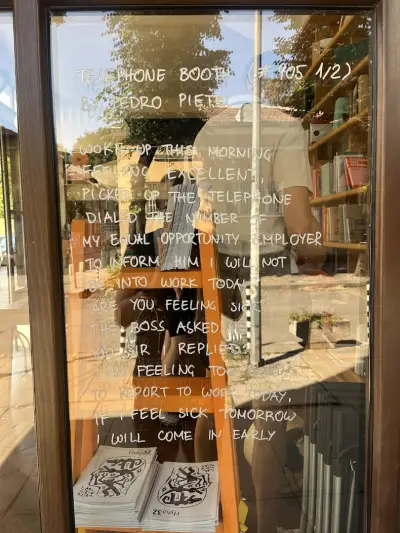 TELEPHONE BOOTH (# 905 1/2)
BY PEDRO PIETRI
WOKE UP THIS MORNING
FEELING EXCELLENT,
PICKED UP THE TELEPHONE
DIALED THE NUMBER OF
MY EQUAL OPPORTUNITY EMPLOYER
TO INFORM HIM I WILL NOT
BE INTO WORK TODAY
ARE YOU FEELING SICK
THE BOSS ASKED
NO SIR I REPLIED
FEELING TOO
TO REPORT TO WORK TODAY,
IF I FEEL SICK TOMORROW
I WILL COME IN EARLY